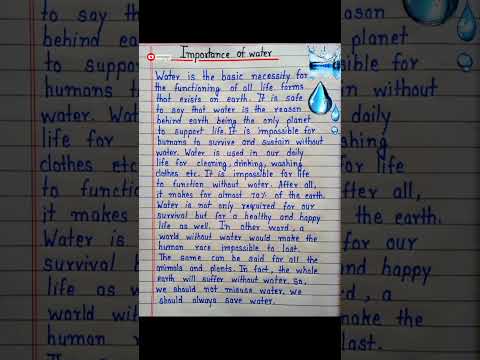 Importance of water
Water is the basic necessity for
the functioning of all life forms
that exists on earth. It is safe
to say that water is the reason
behind earth being the only planet
to support life. It is impossible for
humans to survive and sustain without
water. Water is used in our daily
life for cleaning, drinking, washing
clothes etc. It is impossible for life
to function without water. After all,
it makes for almost 70% of the earth.
Water is not only required for our
survival but for a healthy and happy
life as well. In other word, a
world without water would make the
human race impossible to last.
The same can be said for all the
animals and plants. In fact, the whole
earth will suffer without water. So,
we should not misuse water. We
should always save water.